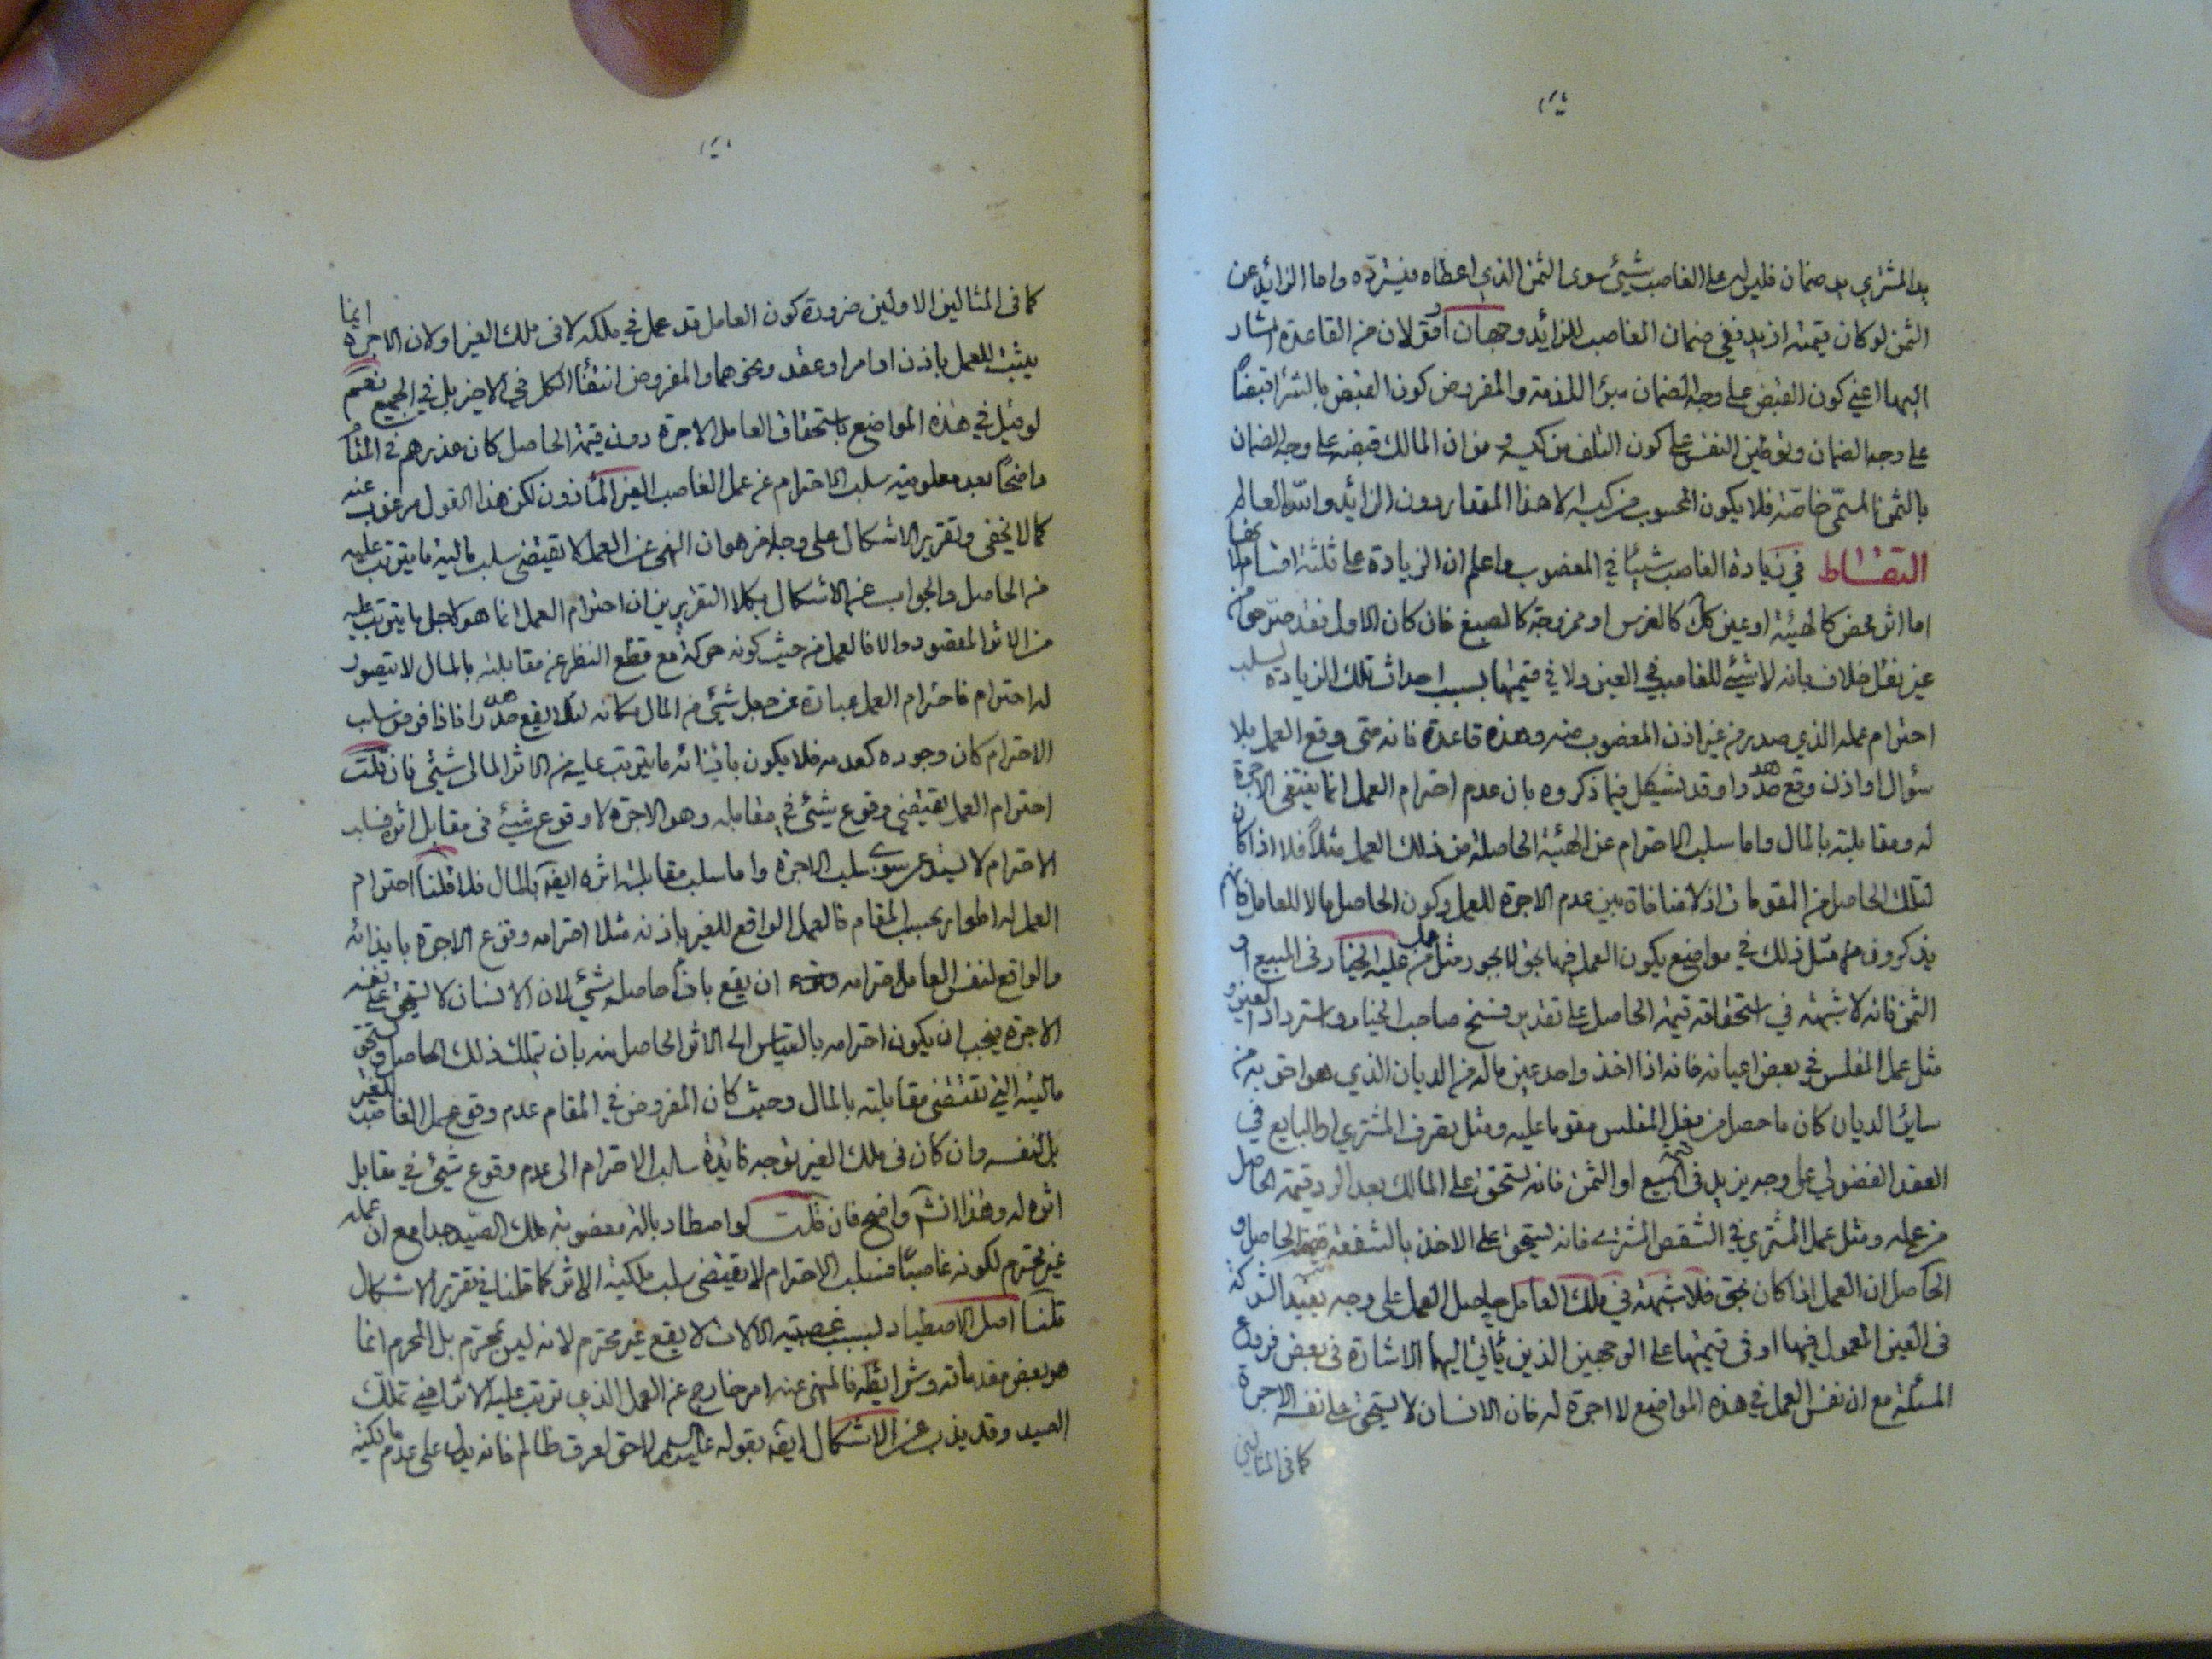 يد المشتري يد ضمان فليس له على الغاصب شيئ سوى الثمن الذي اعطاه فيسترده واما الزائد عن
الثمن لو كان قيمته ازيد ففي ضمان الغاصب للزائد وجهان لان من القاعدة المشار
اليها اعني كون القبض على وجه الضمان مبرأ الذمة والمفروض كون القبض بالشراء قبضاً
على وجه الضمان وتوطين النفس على كون التلف من كيسه ومن ان المالك قبضه على وجه الضمان
بالثمن المسمى خاصة فلا يكون المحسوب من كيسه الا هذا المقدار دون الزائد والله العالم
في زيادة الغاصب شيئا في المغصوب واعلم ان الزيادة على ثلثة اقسام لانها
اما اثر محض كالهيئة او عين كك كالغرس او ممزوجة كالصبغ فان كان الاول فقد صرحوا من
غير نقل خلاف بانه لا شيئ للغاصب في العين ولا في قيمتها بسبب احداث تلك الزيادة لسلب
احترام عمله الذي صدر من غير اذن المغصوب منه وهذه قاعدة فانه متى وقع العمل بلا
سؤال او اذن وقع هدرا وقد يشكل فيما ذكروه بان عدم احترام العمل انما ينفي الاجرة
له ومقابلته بالمال واما سلب الاحترام عن الهيئة الحاصلة من ذلك العمل مثلاً فلا اذا كان
لتلك الحاصل من المقومات اذ لا منافاة بين عدم الاجرة للعمل وكون الحاصل مالا للعامل فانهم
يذكرون مثل ذلك في مواضع يكون العمل فيها بحق لا بجور مثل عمل من عليه الخيار في المبيع او
الثمن فانه لا شبهة في استحقاقه قيمة الحاصل على تقدير فسخ صاحب الخيار واسترداد العين و
مثل عمل المفلس في بعض اعيانه فانه اذا اخذ واحد عين ماله من الديان الذي هو احق به من
ساير الديان كان ما حصل من فعل المفلس مقوما عليه ومثل تصرف المشتري او البايع في
العقد الفضولي على وجه يزيد في قيمة المبيع او الثمن فانه يستحق على المالك بعد الرد قيمة الحاصل
من عمله ومثل عمل المشتري في الشقص المشترى فانه يستحق على الاخذ بالشفعة قيمة الحاصل و
الحاصل ان العمل اذا كان بحق فلا شبهة في ملك العامل حاصل العمل على وجه يفيد الشركة
في العين المعمول فيها او في قيمتها على الوجهين الذين يأتي اليهما الاشارة في بعض فروع
المسئلة مع ان نفس العمل في هذه المواضع لا اجرة له فان الانسان لا يستحق على نفسه الاجرة
كما في المثالين
كما في المثالين الاولين ضرورة كون العامل قد عمل في ملكه لا في ملك الغير او لان الاجرة انما
يثبت للعمل باذن او امر او عقد ونحوهما والمفروض انتفاء الكل في الاخير بل في الجميع نعم
لو قيل في هذه المواضع باستحقاق العامل الاجرة دون قيمة الحاصل كان عذرهم في المقام
واضحاً بعد معلومية سلب الاحترام عن عمل الغاصب الغير المأذون لكن هذا القول مرغوب عنه
كما لا يخفى وتقرير الاشكال على وجه اخر هو ان النهي عن العمل لا تقتضي سلب مالية ما يترتب عليه
من الحاصل والجواب عن الاشكال بكلا التقريرين ان احترام العمل انما هو لاجل ما يترتب عليه
من الاثر المقصود والا فالعمل من حيث كونه حركة مع قطع النظر عن مقابلته بالمال لا يتصور
له احترام فاحترام العمل عبارة عن جعل شيئ من المال مكانه لئلا يقع هدرا فاذا فرض سلب
الاحترام كان وجوده كعدمه فلا يكون بازاء ما يترتب عليه من الاثر المالي شيئ فان قلت
احترام العمل يقتضي وقوع شيئ في مقابله وهو الاجرة لا وقوع شيئ في مقابل اثره فسلب
الاحترام لا يستدعي سوى سلب الاجرة واما سلب مقابلة اثره ايضه بالمال فلا قلنا احترام
العمل له اطوار بحسب المقام فالعمل الواقع للغير باذنه مثلا احترامه وقوع الاجرة بازائه
والواقع لنفس العامل احترامه ان يقع بازاء حاصله شيئ لان الانسان لا يستحق على نفسه
الاجرة فيجب ان يكون احترامه بالقياس الى الاثر الحاصل منه بان يتملك ذلك الحاصل ويستحق
ماليته التي تقتضي مقابلته بالمال وحيث كان المفروض في المقام عدم وقوع عمل الغاصب للغير
بل لنفسه وان كان في ملك الغير توجه فائدة سلب الاحترام الى عدم وقوع شيئ في مقابل
اثره له وهذا انشه واضح فان قلت لو اصطاد بالة مغصوبة ملك الصيد جدا مع ان عمله
غير محترم لكونه غاصباً فسلب الاحترام لا يقتضي سلب ملكية الاثر كما قلنا في تقرير الاشكال
قلنا اصل الاصطياد لسبب غصبية الالات لا يقع غير محترم لانه ليس بمحرم بل المحرم انما
هو بعض مقدماته وشرايطه فالمنهي عنه امر خارج عن العمل الذي ترتب عليه الاثر اعني تملك
الصيد وقد يذب عن الاشكال ايضه بقوله عليه السلام لا حق لعرق ظالم فانه يدل على عدم مالكية